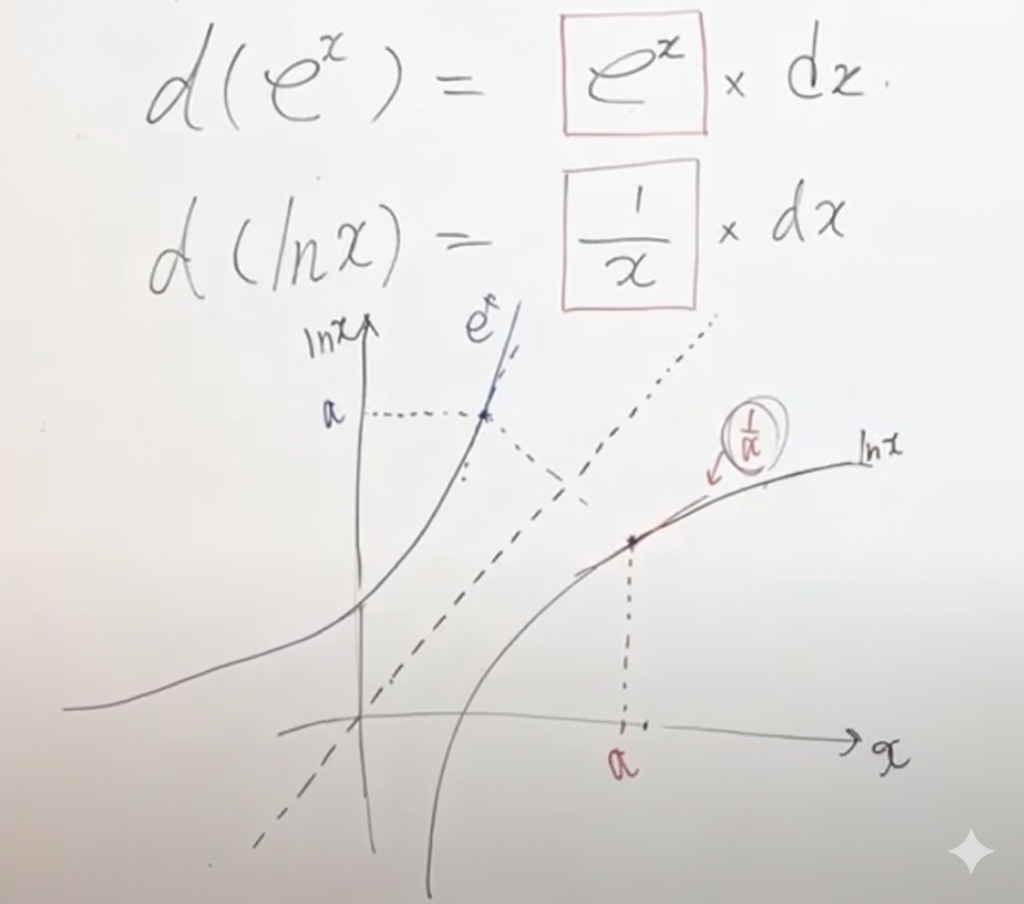 d(eˣ) = eˣ × dx.
d(lnx) = 1/x × dx
lnx
eˣ
a
1/a
lnx
a
x